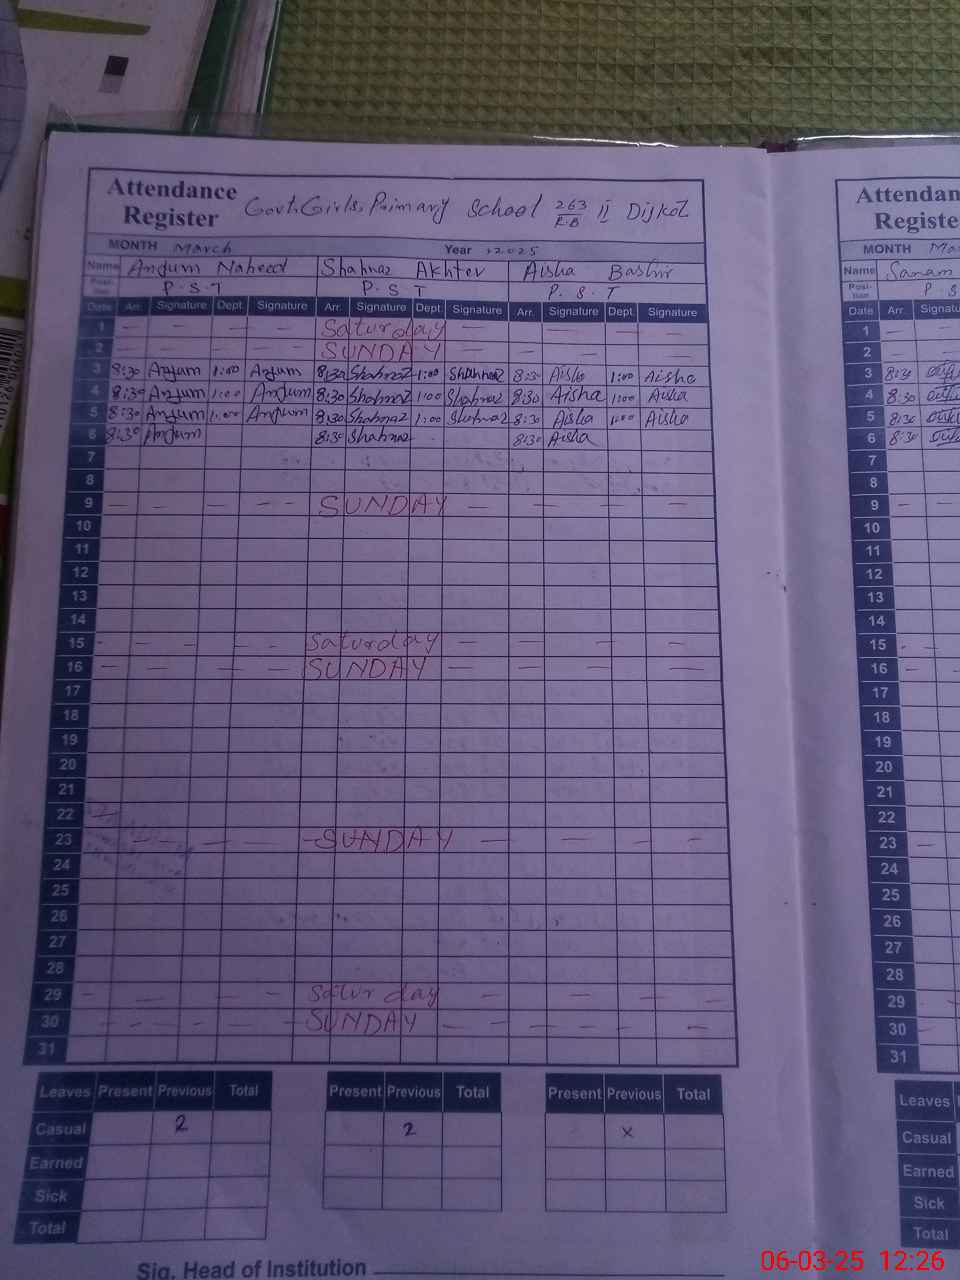 Attendance
Register
Govt. Girls, Primary School 263/R.B II Dijkot
MONTH March Year 2025
Name Anjum Naheed Shahnaz Akhter Aisha Bashir
Posi-tion P.S.T P.S.T P.S.T
Date Arr. Signature Dept. Signature Arr. Signature Dept. Signature Arr. Signature Dept. Signature
1 Saturday
2 SUNDAY
3 8:30 Anjum 1:00 Anjum 8:30 Shahnaz 1:00 Shahnaz 8:30 Aisha 1:00 Aisha
4 8:30 Anjum 1:00 Anjum 8:30 Shahnaz 1:00 Shahnaz 8:30 Aisha 1:00 Aisha
5 8:30 Anjum 1:00 Anjum 8:30 Shahnaz 1:00 Shahnaz 8:30 Aisha 1:00 Aisha
6 8:30 Anjum 8:30 Shahnaz 8:30 Aisha
7
8
9 SUNDAY
10
11
12
13
14
15 Saturday
16 SUNDAY
17
18
19
20
21
22
23 SUNDAY
24
25
26
27
28
29 Saturday
30 SUNDAY
31
Leaves Present Previous Total Present Previous Total Present Previous Total
Casual 2 2 x
Earned
Sick
Total
Sig. Head of Institution
Attendan
Registe
MONTH Ma
Name Sanam
Posi-tion P.S
Date Arr. Signatu
1
2
3 8:30
4 8:30
5 8:30
6 8:30
7
8
9
10
11
12
13
14
15
16
17
18
19
20
21
22
23
24
25
26
27
28
29
30
31
Leaves
Casual
Earned
Sick
Total
06-03-25 12:26